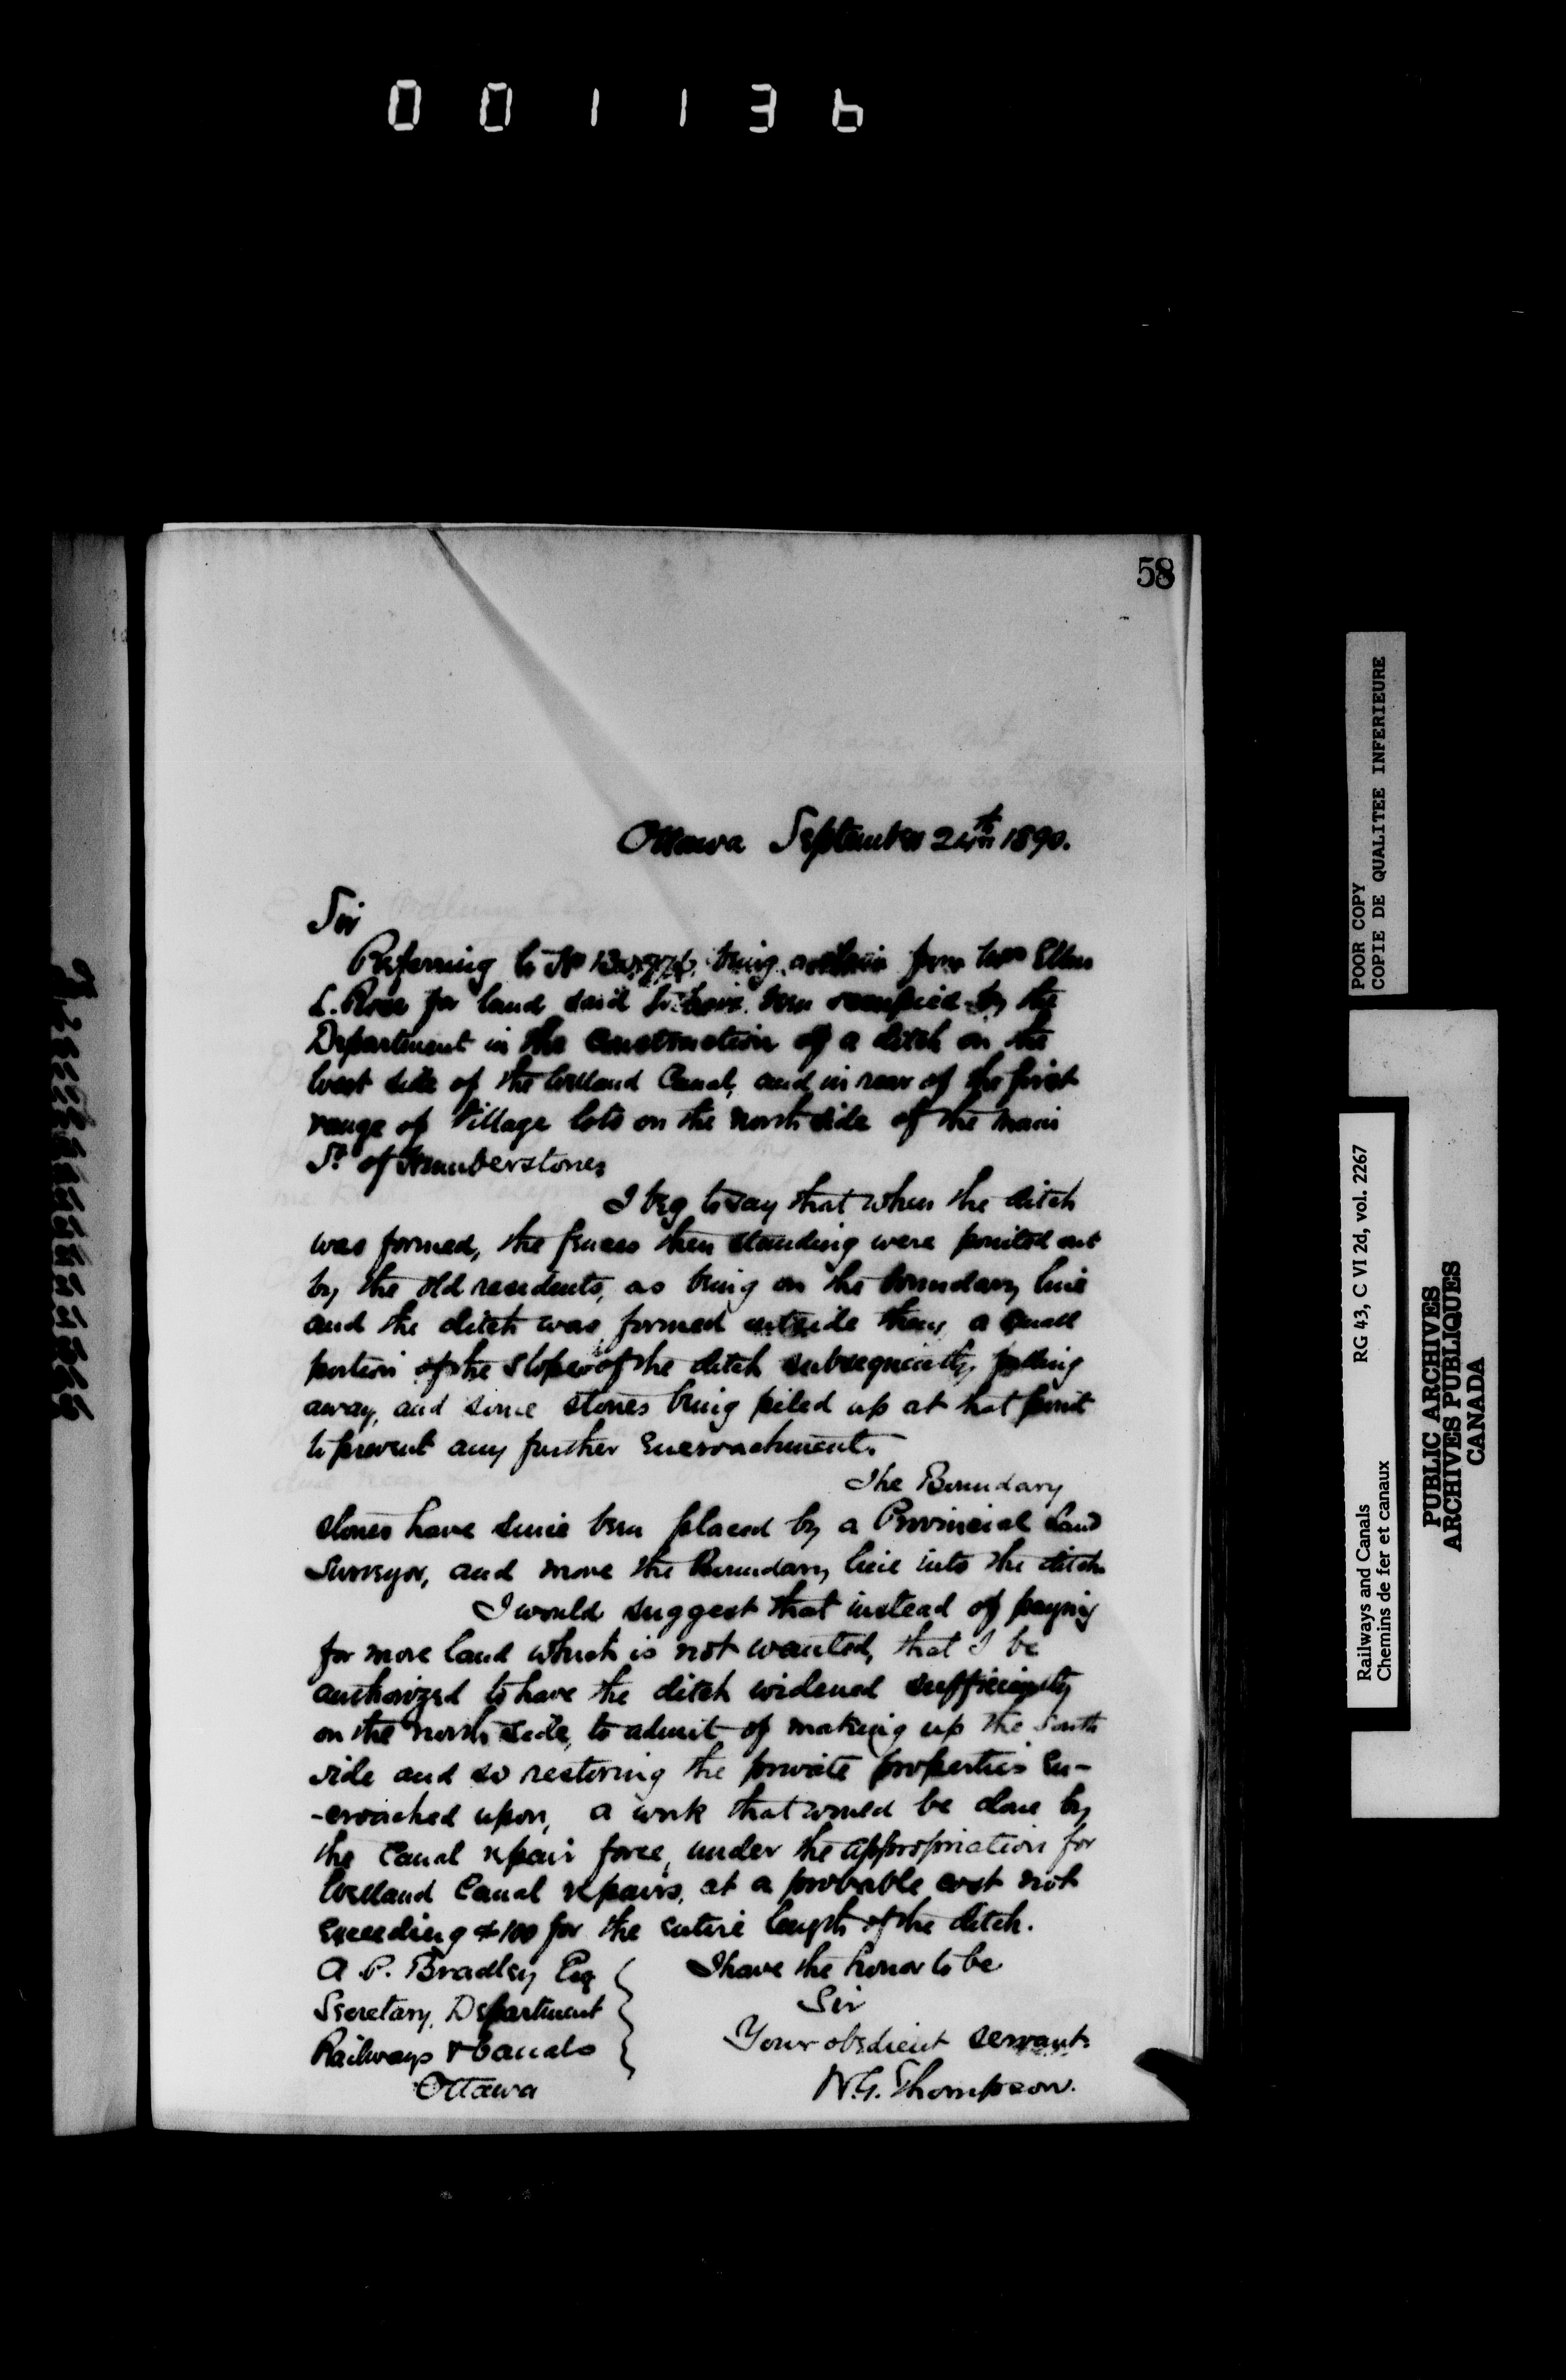 001136
58
Ottawa September 24th 1890.
Sir
Referring to No being a claim from Mrs Ellen
L. Rose for land said to have been occupied by the
Department in the construction of a ditch on the
West side of the Welland Canal, and in rear of the first
range of Village lots on the north side of the Main
St. of Humberstone,
I beg to say that when the ditch
was formed, the fences then standing were pointed out
by the old residents, as being on the boundary line
and the ditch was formed outside them, a small
portion of the slope of the ditch subsequently falling
away, and some stones being piled up at that point
to prevent any further encroachment.
The Boundary
stones have since been placed by a Provincial Land
Surveyor, and move the Boundary line into the ditch.
I would suggest that instead of paying
for more land which is not wanted, that I be
authorized to have the ditch widened sufficiently
on the north side, to admit of making up the South
side and so restoring the private properties en-
-croached upon, a work that would be done by
the Canal repair force, under the appropriation for
Welland Canal repairs, at a probable cost not
exceeding $100 for the entire length of the ditch.
I have the honor to be
Sir
Your obedient servant.
W.G. Thompson.
A. P. Bradley Esq
Secretary, Department
Railways & Canals
Ottawa
POOR COPY
COPIE DE QUALITEE INFERIEURE
Railways and Canals RG 43, C VI 2d, vol. 2267
Chemins de fer et canaux
PUBLIC ARCHIVES
ARCHIVES PUBLIQUES
CANADA